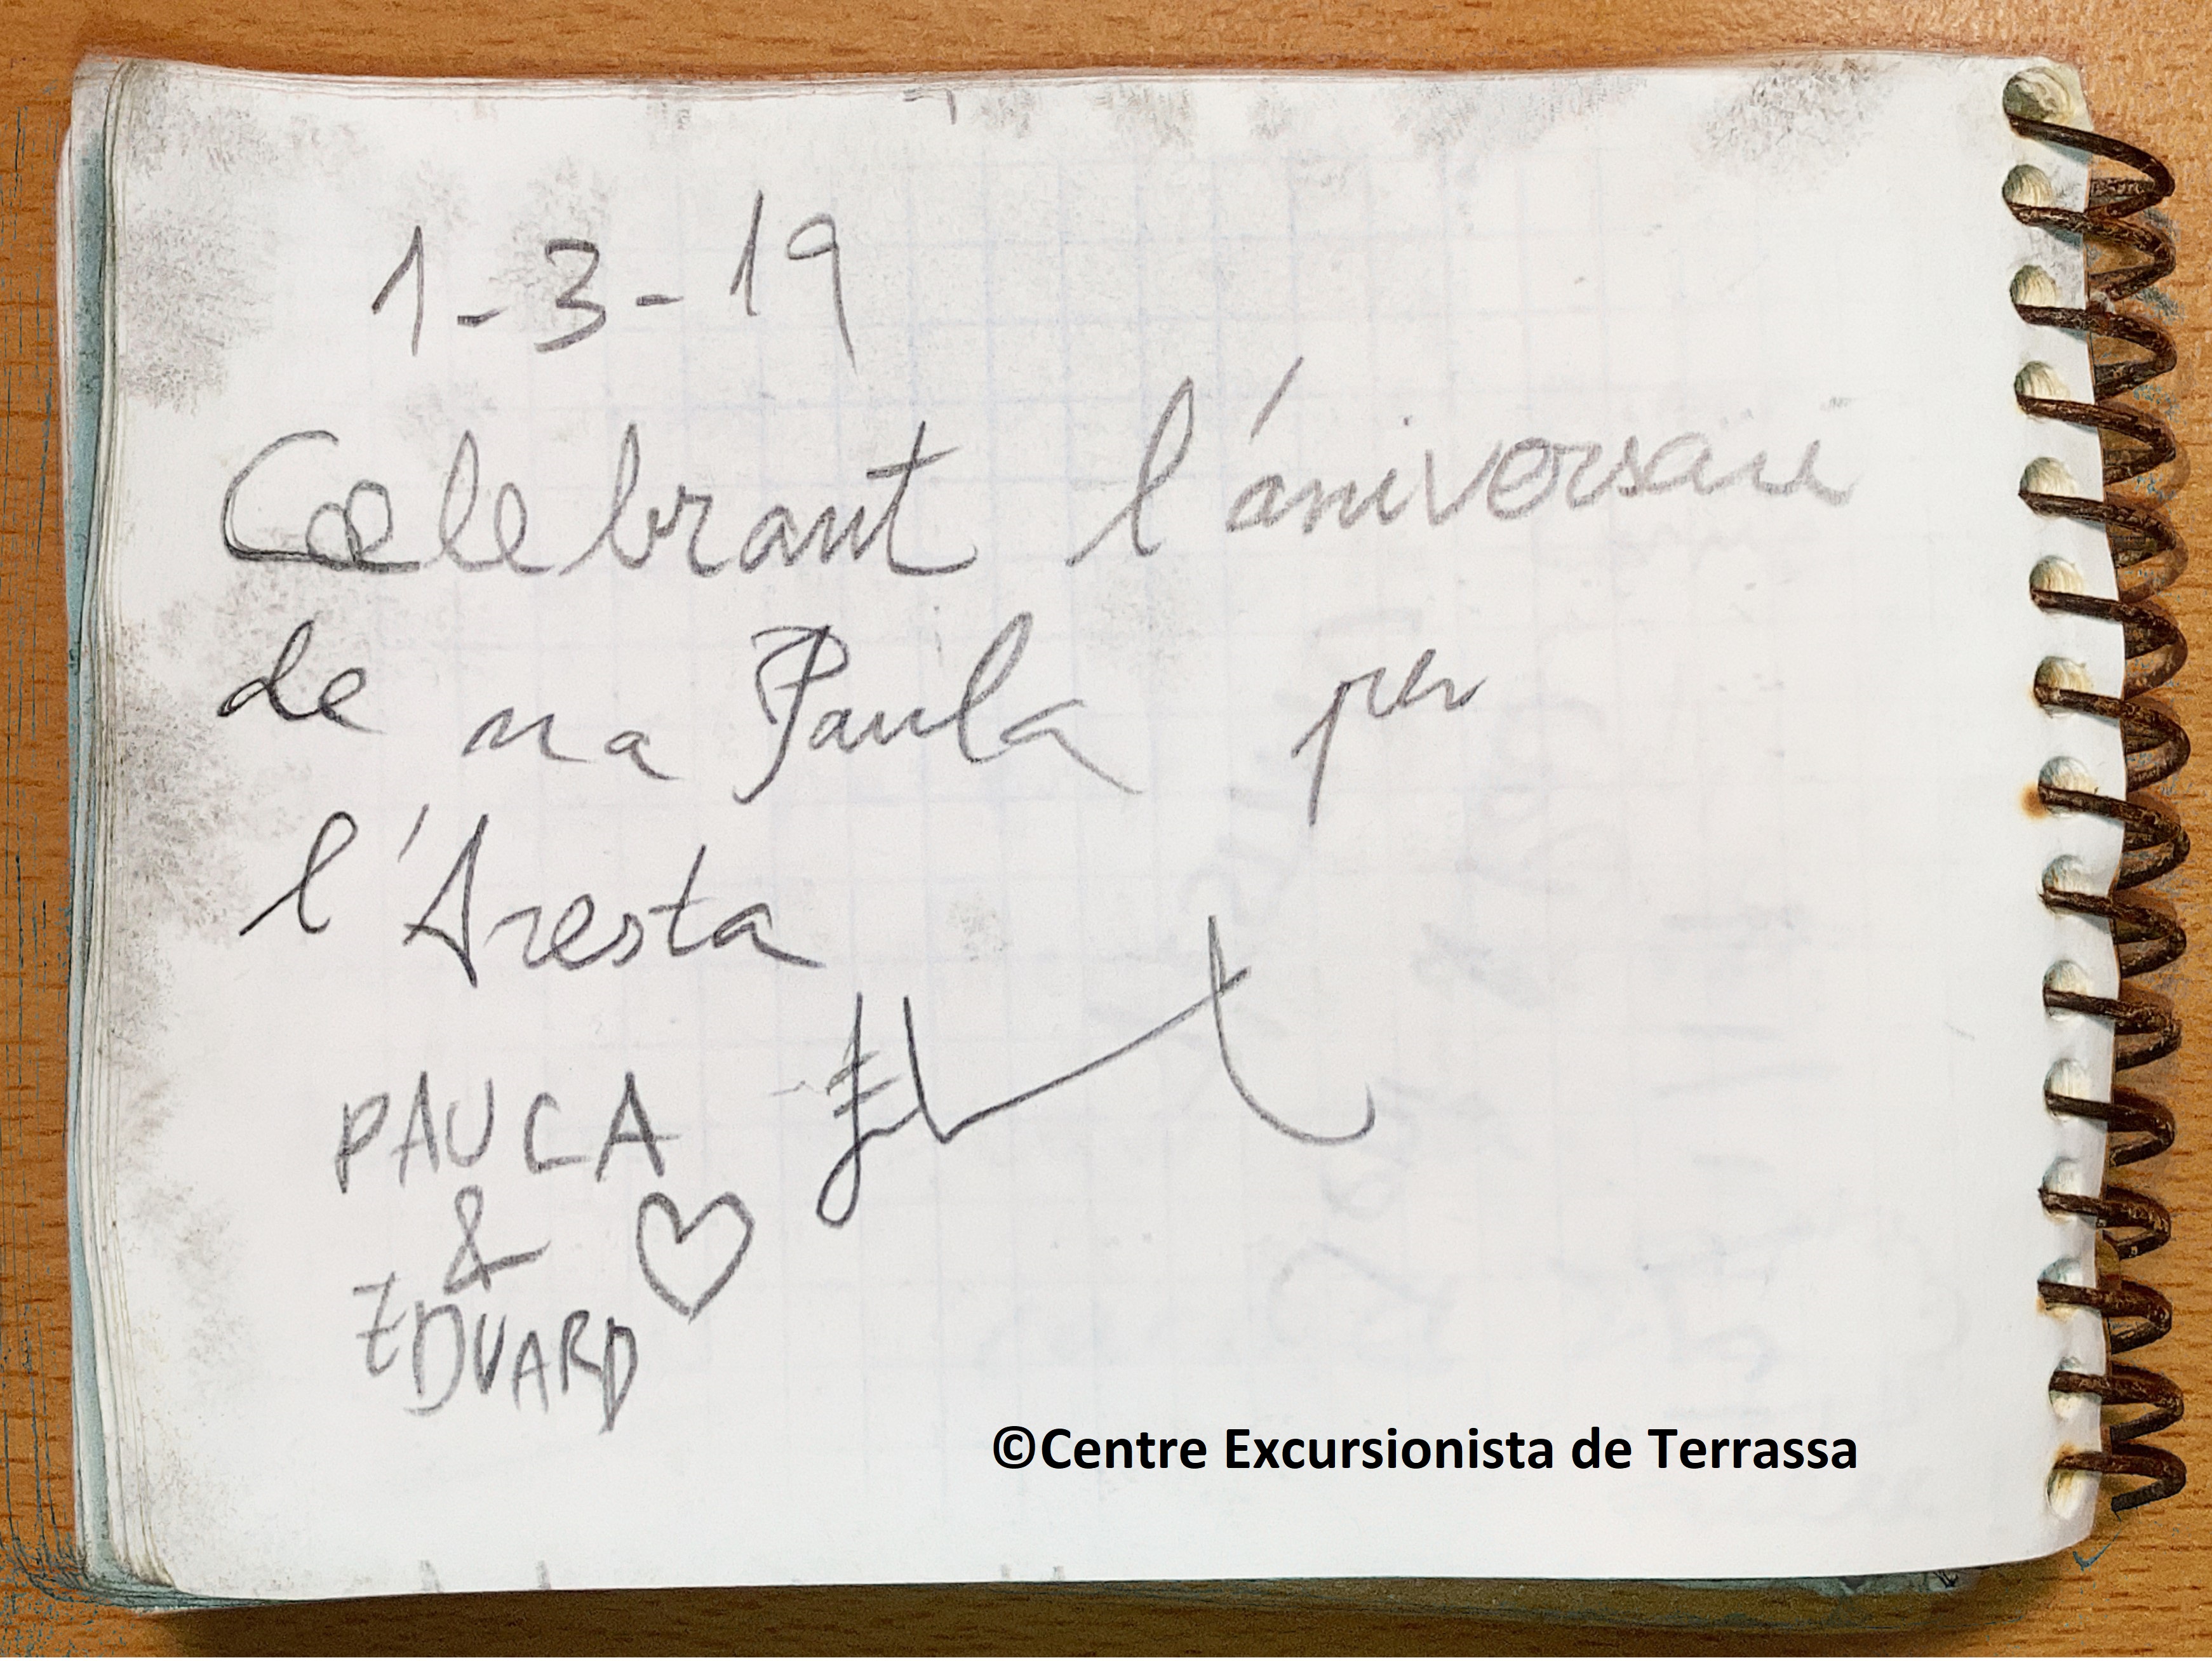 1-3-19
Celebrant l'aniversari
de na Paula per
l'Aresta
PAULA
&
EDUARD
©Centre Excursionista de Terrassa